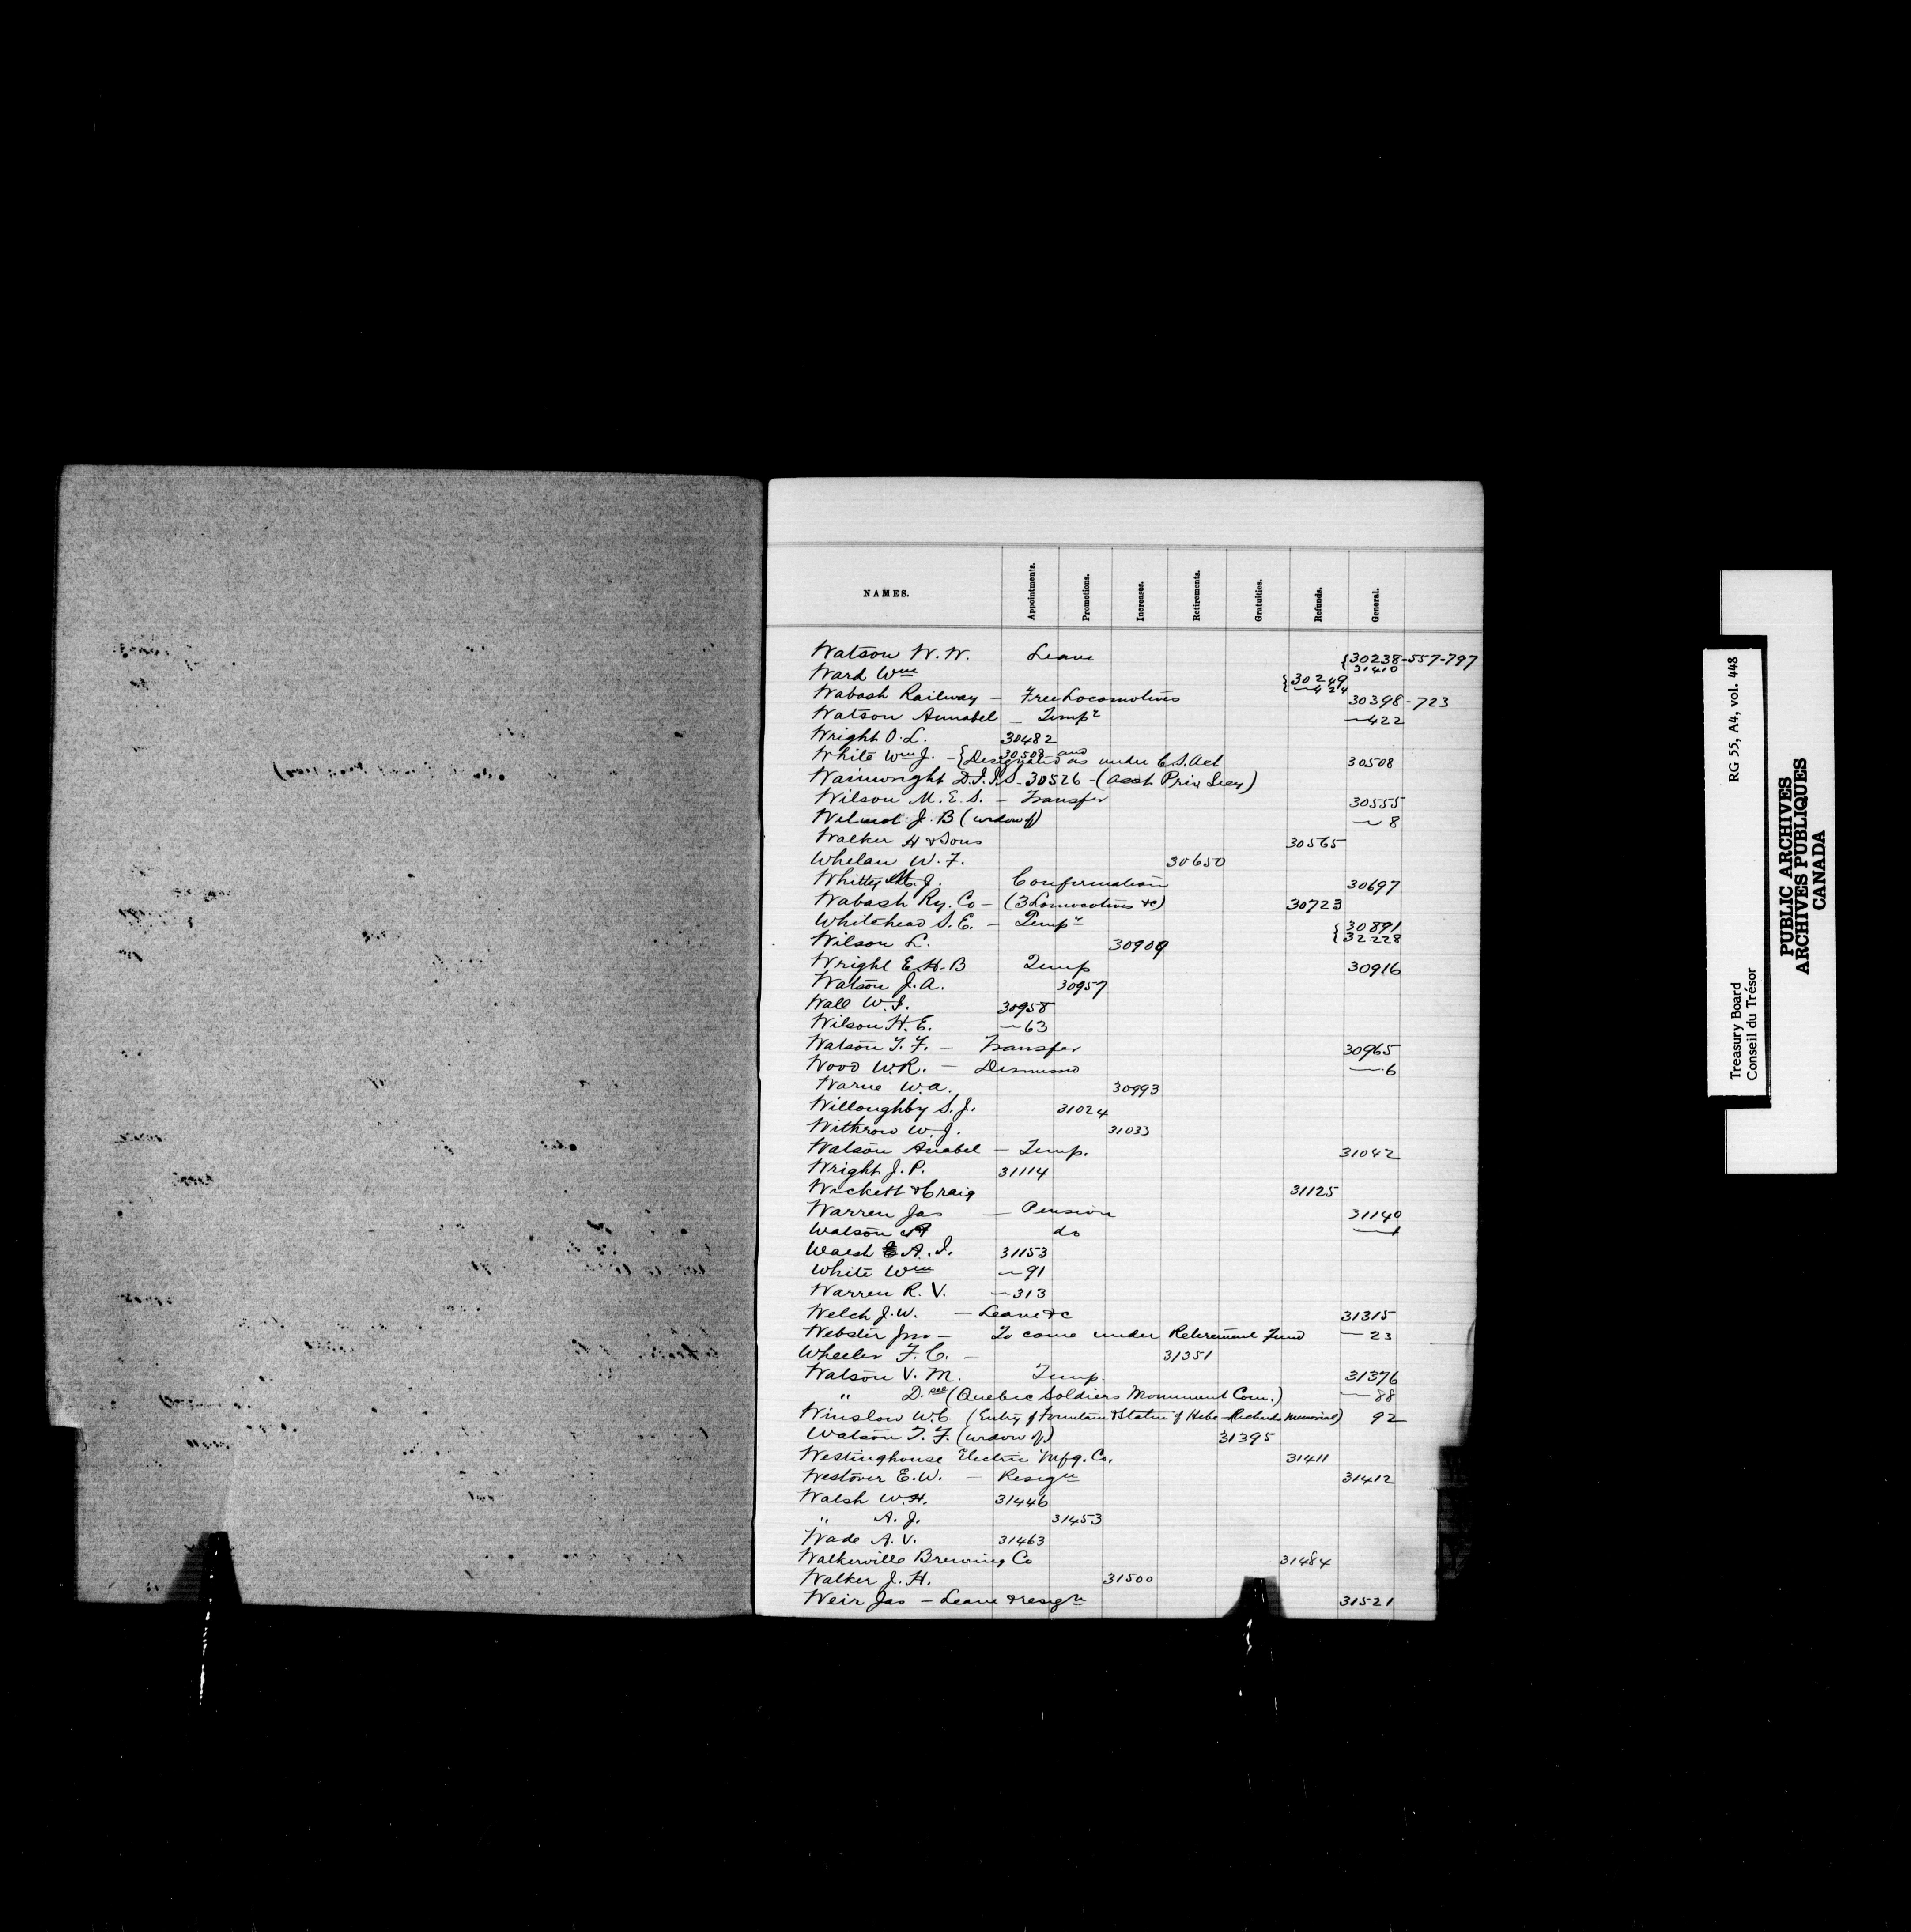 NAMES. Appointments. Promotions. Increases. Retirements. Gratuities. Refunds. General.
Watson W. W. Leave {30238-557-797
31410
Ward Wm {30249
—424
Wabash Railway — Free Locomotives 30398-723
Watson Annabel — Tempy —422
Wright O. L. 30482
White Wm J. — {30508 and
Designated as under C.S. Act 30508
Wainwright D.J.J.S. 30526 - (Asst Priv Secy)
Wilson M. E. S. — Transfer 30555
Wilmot J. B (widow of) — 8
Walker H & Sons 30565
Whelan W. F. 30650
Whitty M. J. Confirmation 30697
Wabash Ry. Co — (3 Locomotives &c) 30723
Whitehead S. E. — Tempy {30891
{32228
Wilson L. 30909
Wright E. H. B Temp 30916
Watson J. A. 30957
Wall W. I. 30958
Wilson H. E. —63
Watson T. F. — Transfer 30965
Wood W. R. — Dismissed —6
Warne W. A. 30993
Willoughby S. J. 31024
Withrow W. J. 31033
Watson Anabel — Temp. 31042
Wright J. P. 31114
Wickett & Craig 31125
Warren Jas — Pension 31140
Watson do —1
Walsh A. J. 31153
White Wm —91
Warren R. V. —313
Welch J. W. — Leave &c 31315
Webster Jno — To come under Retirement Fund —23
Wheeler F. C. — 31351
Watson V. M. Temp. 31376
" D. (Quebec Soldiers Monument Com.) —88
Winslow W. C. (Entry of Fountain & Statue of Hebe Richards Memorial) 92
Watson T. F. (widow of) 31395
Westinghouse Electric Mfg. Co. 31411
Westover E. W. — Resign 31412
Walsh W. H. 31446
" A. J. 31453
Wade A. V. 31463
Walkerville Brewing Co 31484
Walker J. H. 31500
Weir Jas — Leave & resign 31521
Treasury Board RG 55, A4, vol. 448
Conseil du Trésor
PUBLIC ARCHIVES
ARCHIVES PUBLIQUES
CANADA